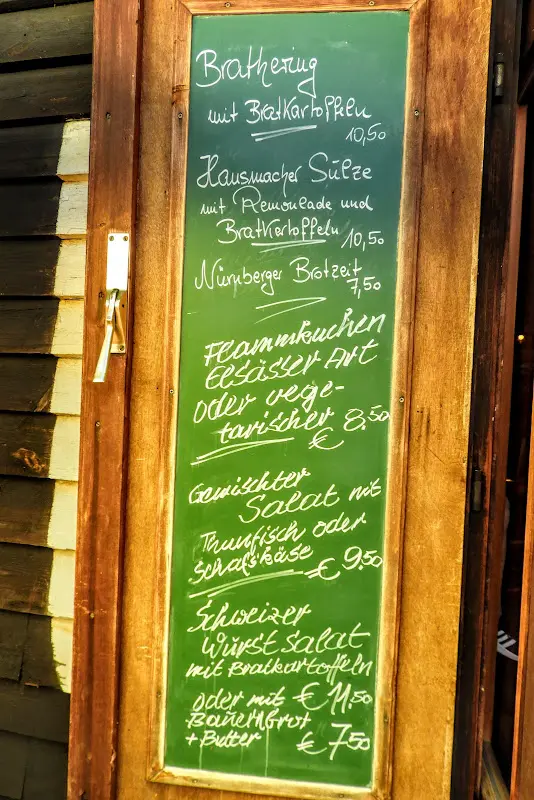 Brathering
mit Bratkartoffeln
10,50
Hausmacher Sülze
mit Remoulade und
Bratkartoffeln 10,50
Nürnberger Brotzeit
7,50
Flammkuchen
Elsässer Art
oder vege-
tarischer € 8.50
Gemischter
Salat mit
Thunfisch oder
Schafskäse € 9.50
Schweizer
Wurstsalat
mit Bratkartoffeln
oder mit € 11.50
Bauernbrot
+ Butter € 7.50